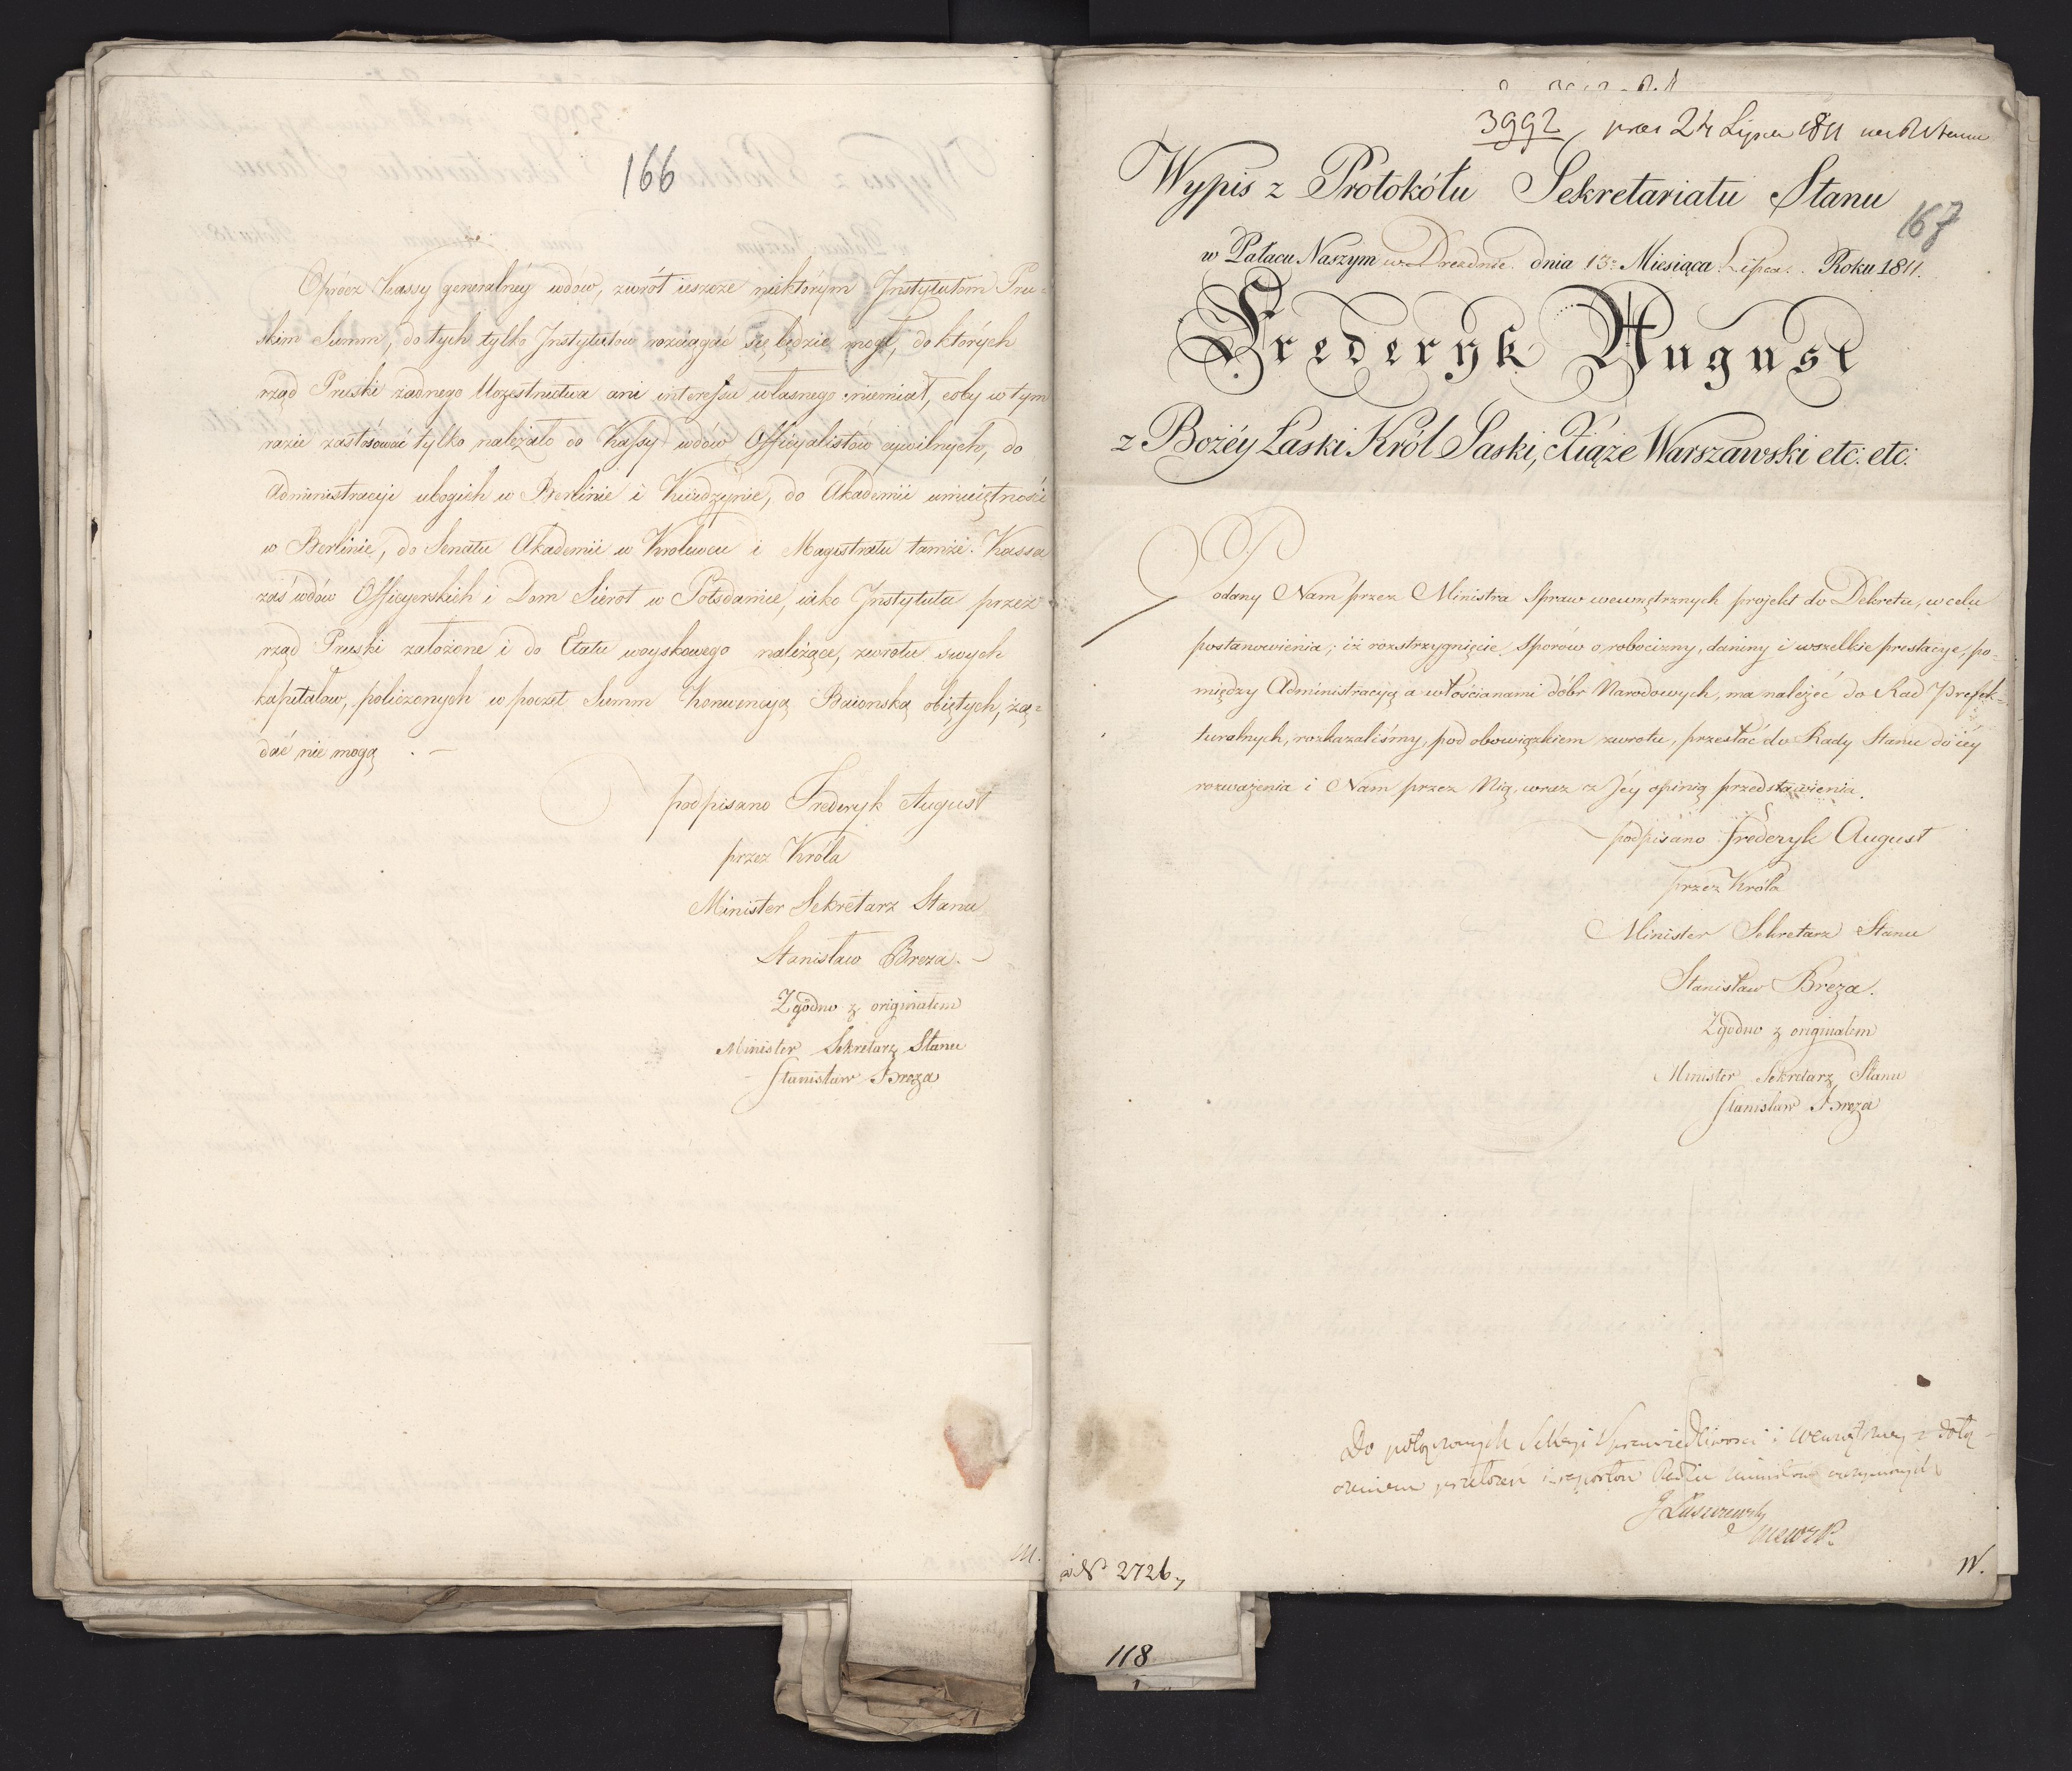 166
Oprócz Kassy generalnéy wdów, zwrót ieszcze niektórym Instytutom Pru-
skim Summ, do tych tylko Instytutow rozciągać się będzie mógł, do których
rząd Pruski żadnego Uczestnictwa ani interessu własnego niemiał, coby w tym
razie zastosować tylko należało do Kassy wdów Officyalistów cywilnych, do
Administracyi ubogich w Berlinie i Kwidzynie, do Akademii umieiętności
w Berlinie, do Senatu Akademii w Krolewcu i Magistratu tamże. Kassa
zaś wdów Officyerskich i Dom Sierot w Potsdamie, iako Instytuta przez
rząd Pruski założone i do Etatu woyskowego należące, zwrotu swych
kapitałow, policzonych w poczet Summ Konwencyą Baionską obiętych, żą-
dać nie mogą. —
podpisano Frederyk August
przez Króla
Minister Sekretarz Stanu
Stanisław Breza.
Zgodno z originałem
Minister Sekretarz Stanu
Stanisław Breza
III.
3992 praes 24 Lipca 1811
Wypis z Protokółu Sekretariatu Stanu
167
w Pałacu Naszym w Dreźnie dnia 13 Miesiąca Lipca Roku 1811.
Frederyk August
z Bożéy Łaski Król Saski, Xiąże Warszawski etc: etc:
Podany Nam przez Ministra Spraw wewnętrznych projekt do Dekretu, w celu
postanowienia; iż rozstrzygnięcie sporów o robocizny, daniny i wszelkie prestacye, po-
między Administracyą a włościanami dóbr Narodowych, ma należeć do Rad Prefek-
turalnych, rozkazaliśmy, pod obowiązkiem zwrotu, przesłać do Rady Stanu do iéy
rozważenia i Nam przez Nią, wraz z Jéy opinią przedstawienia.
podpisano Frederyk August
przez Króla
Minister Sekretarz Stanu
Stanisław Breza.
Zgodno z originałem
Minister Sekretarz Stanu
Stanisław Breza
Do połączonych Sekcyi Sprawiedliwości i Wewnętrzney z dołą-
czeniem przełożeń i raportow Ministra
J Łuszczewski
a N° 2726
IV.
118